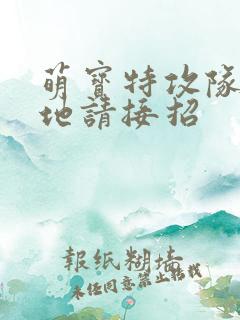 萌寶特攻隊
地請接招
報紙糊墻
未經同意禁止轉載